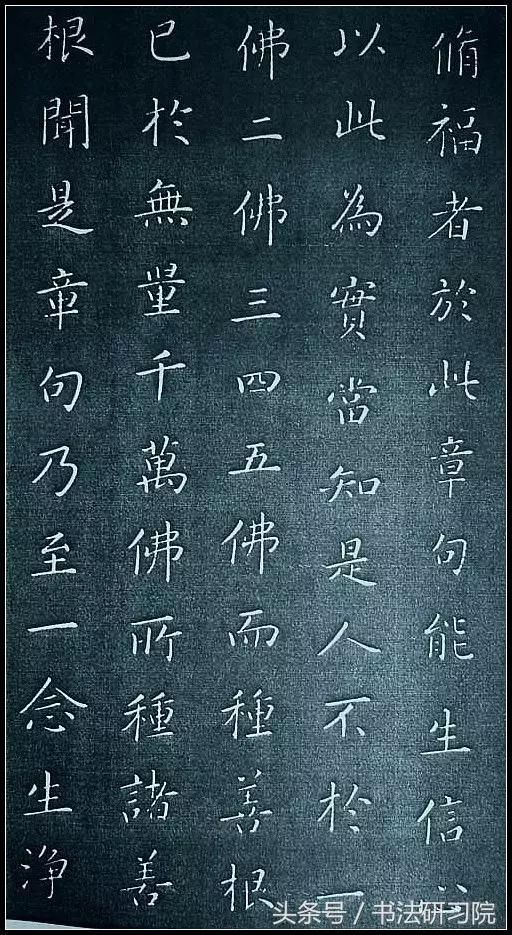 脩福者於此章句能生信心
以此為實當知是人不於一
佛二佛三四五佛而種善根
已於無量千萬佛所種諸善
根聞是章句乃至一念生浄
头条号 / 书法研习院